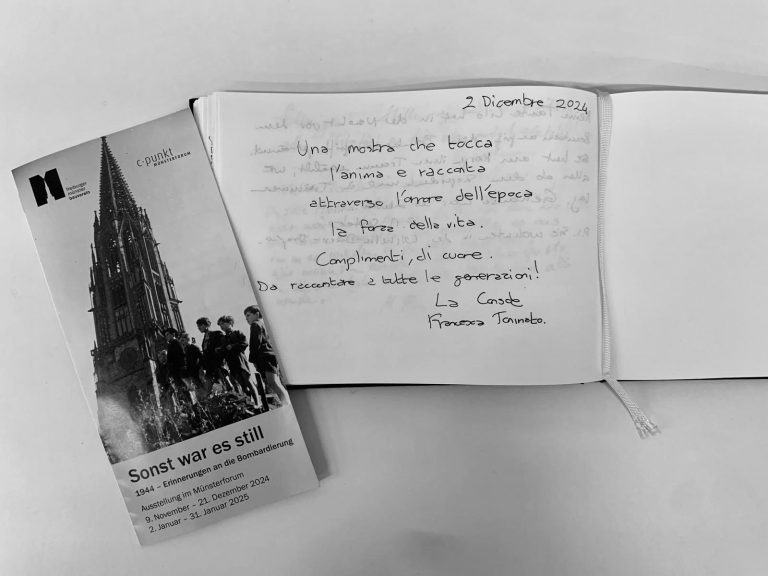 freiburger
münster
bauverein
c-punkt
MÜNSTERFORUM
Sonst war es still
1944 – Erinnerungen an die Bombardierung
Ausstellung im Münsterforum
9. November – 21. Dezember 2024
2. Januar – 31. Januar 2025
2 Dicembre 2024
Una mostra che tocca
l'anima e racconta
attraverso l'orrore dell'epoca
la forza della vita.
Complimenti, di cuore.
Da raccontare a tutte le generazioni!
La Console
Francesca